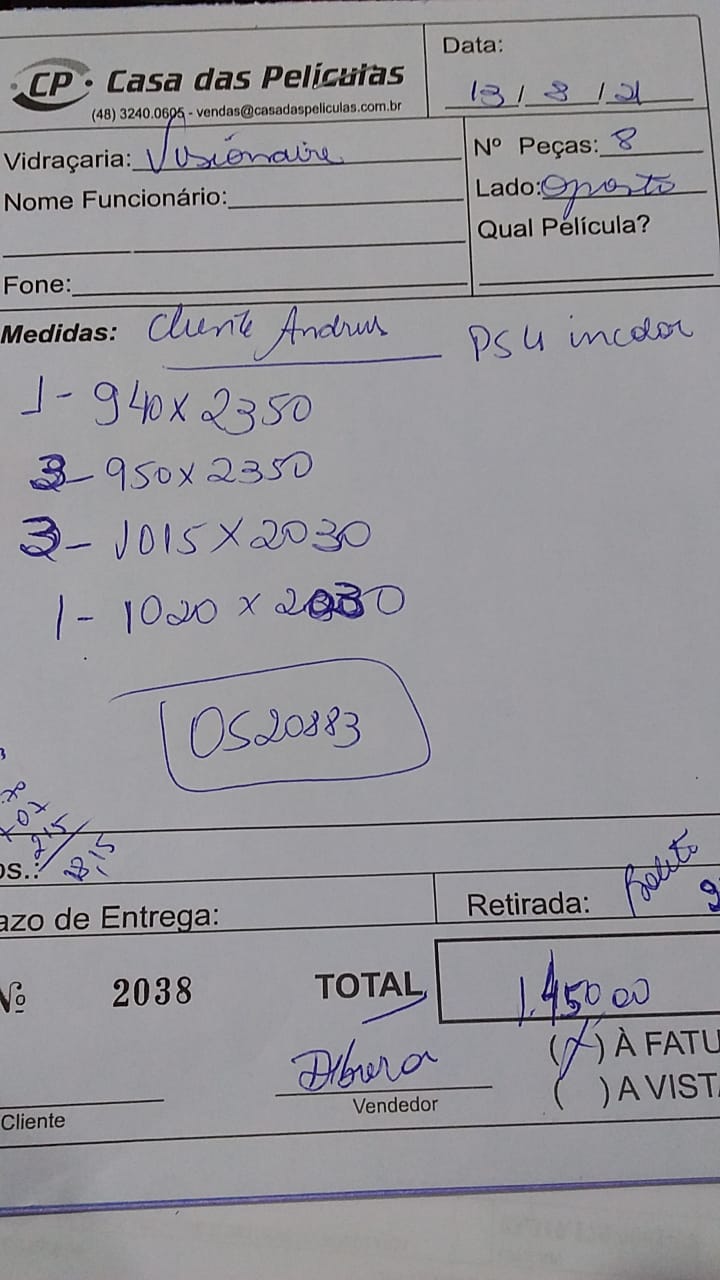 CP • Casa das Películas
(48) 3240.0605 - vendas@casadaspeliculas.com.br
Data:
13 / 8 / 21
Vidraçaria: Visionaire
Nº Peças: 8
Nome Funcionário:
Lado: oposto
Qual Película?
Fone:
Medidas: Cliente Andrus
PS4 incolor
1 - 940 x 2350
3 - 950 x 2350
3 - 1015 x 2030
1 - 1020 x 2030
OS20883
os.:
azo de Entrega:
Retirada: Boleto
Nº 2038
TOTAL 1.450 00
(X) À FATU
Débora
( ) A VISTA
Vendedor
Cliente